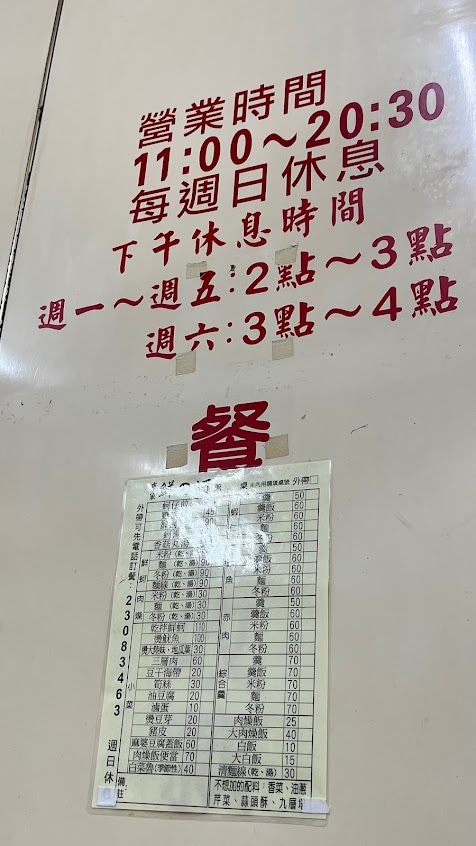 營業時間
11:00～20:30
每週日休息
下午休息時間
週一～週五:2點～3點
週六:3點～4點
餐
外帶
外帶可先電話訂餐:23083463 週日休
香菇丸湯
米粉(乾、湯) 90
麵(乾、湯) 90
冬粉(乾、湯) 90
麵線(乾、湯) 90
肉燥
米粉(乾、湯) 30
麵(乾、湯) 30
冬粉(乾、湯) 30
乾拌鮮蚵 110
燙魷魚 100
燙大陸妹、地瓜葉 30
小菜
三層肉 60
豆干海帶 20
筍絲 30
油豆腐 20
滷蛋 10
燙豆芽 20
豬皮 20
麻婆豆腐蓋飯 60
肉燥飯便當 70
白菜魯(季節性) 40
羹 50
羹飯 60
米粉 60
麵 60
冬粉 60
羹 50
羹飯 60
米粉 60
麵 60
冬粉 60
赤肉
羹 50
羹飯 60
米粉 60
麵 60
冬粉 60
綜合羹
羹 70
羹飯 70
米粉 70
麵 70
冬粉 70
肉燥飯 25
大肉燥飯 40
白飯 10
大白飯 15
清麵線(乾、湯) 30
備註
不想加的配料:香菜、油蔥
芹菜、蒜頭酥、九層塔